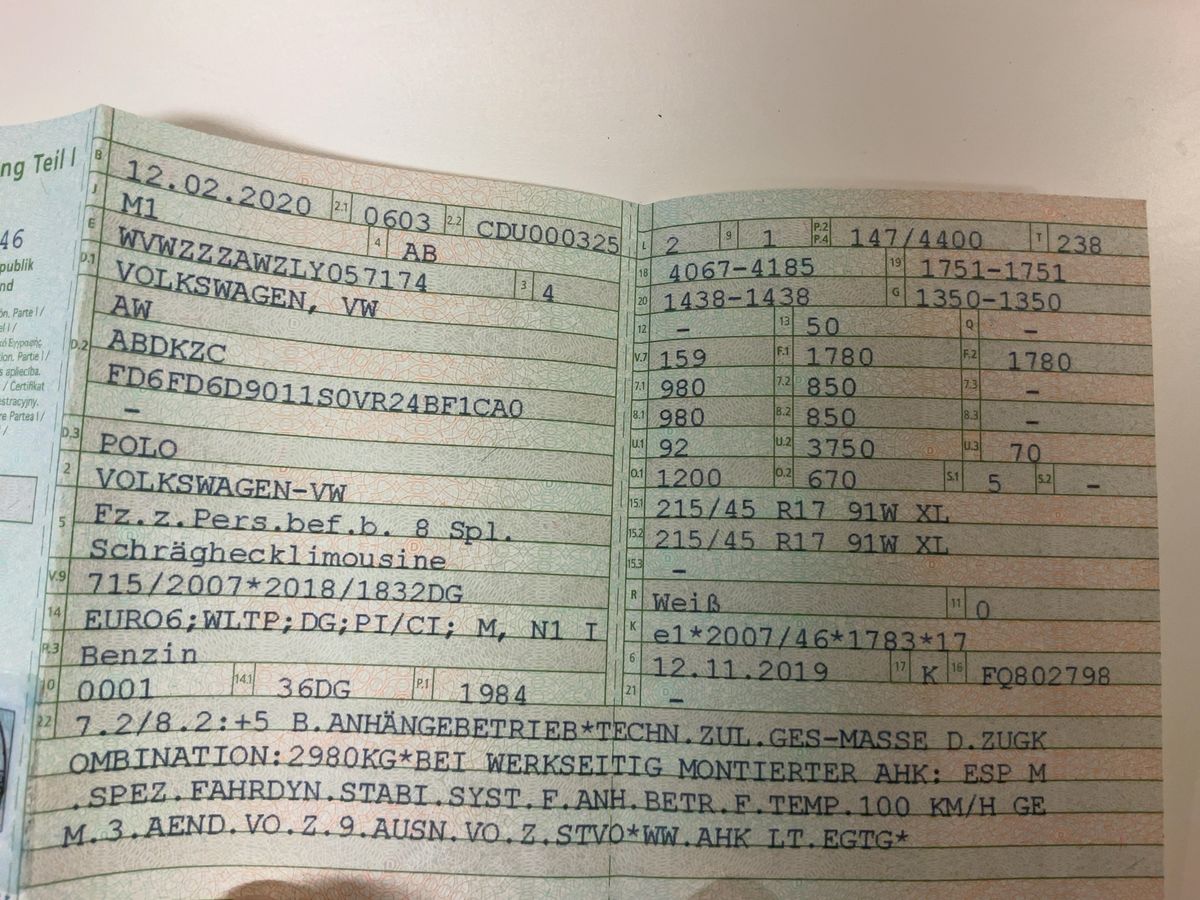 ng Teil I
46
publik
nd
ón. Parte I /
el I /
ion. Partie I /
s apliecība.
/ Certifikat
estracyjny.
re Partea I /
B 12.02.2020 2.1 0603 2.2 CDU000325
J M1 4 AB
E WVWZZZAWZLY057174 3 4
D.1 VOLKSWAGEN, VW
AW
D.2 ABDKZC
FD6FD6D9011S0VR24BF1CA0
–
D.3 POLO
2 VOLKSWAGEN-VW
5 Fz.z.Pers.bef.b. 8 Spl.
Schräghecklimousine
V.9 715/2007*2018/1832DG
14 EURO6;WLTP;DG;PI/CI; M, N1 I
P.3 Benzin
10 0001 14.1 36DG P.1 1984
L 2 9 1 P.2 P.4 147/4400 T 238
18 4067-4185 19 1751-1751
20 1438-1438 G 1350-1350
12 – 13 50 Q –
V.7 159 F.1 1780 F.2 1780
7.1 980 7.2 850 7.3 –
8.1 980 8.2 850 8.3 –
U.1 92 U.2 3750 U.3 70
O.1 1200 O.2 670 S.1 5 S.2 –
15.1 215/45 R17 91W XL
15.2 215/45 R17 91W XL
15.3 –
R Weiß 11 0
K e1*2007/46*1783*17
6 12.11.2019 17 K 16 FQ802798
21 –
22 7.2/8.2:+5 B.ANHÄNGEBETRIEB*TECHN.ZUL.GES-MASSE D.ZUGK
OMBINATION:2980KG*BEI WERKSEITIG MONTIERTER AHK: ESP M
.SPEZ.FAHRDYN.STABI.SYST.F.ANH.BETR.F.TEMP.100 KM/H GE
M.3.AEND.VO.Z.9.AUSN.VO.Z.STVO*WW.AHK LT.EGTG*